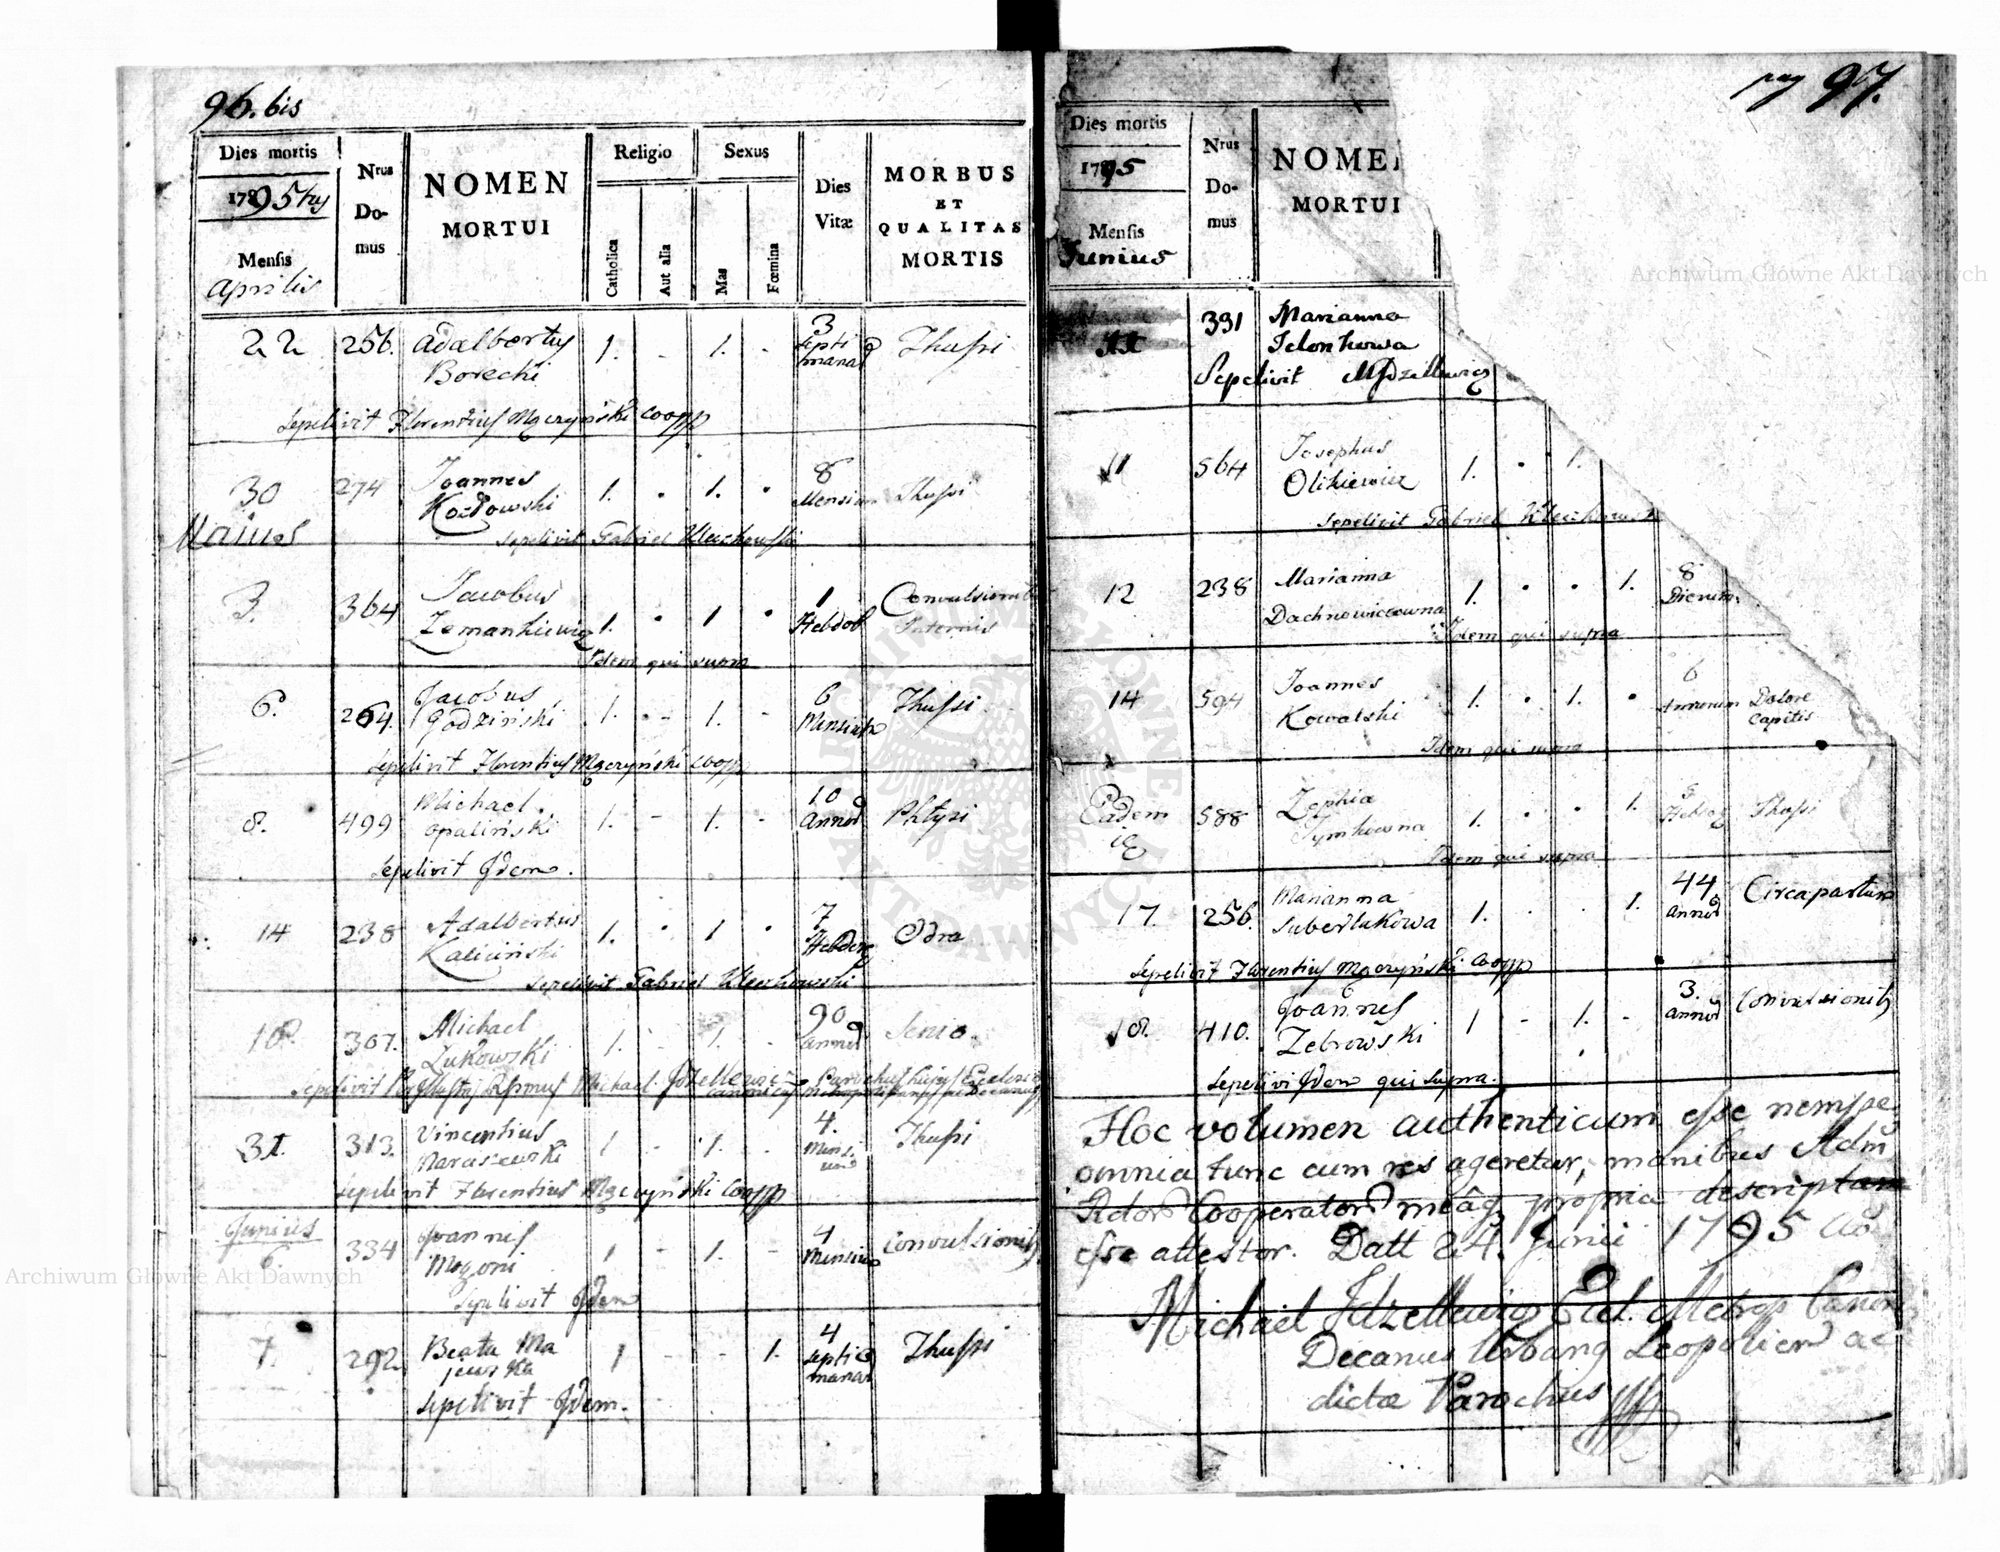 96. bis
Dies mortis
1795
Mensis
Aprilis
Nrus
Do-
mus
NOMEN
MORTUI
Religio
Catholica
Aut alia
Sexus
Mas
Fœmina
Dies
Vitæ
MORBUS
ET
QUALITAS
MORTIS
22 256. Adalbertus Borecki 1. - 1. - 3 septi manar Thussi
Sepelivit Florentius Mączyński Coopp
30 274 Joannes Kozłowski 1. . 1. . 8 Mensium Thussi
Sepelivit Gabriel Kleczkowski
Maius
3. 364 Jacobus Zemankiewicz 1. . 1 . 1 Hebdo Convulsionibus Internis
Idem qui supra
6. 264. Jacobus Godziński 1. - 1. - 6 Mensium Thussi
Sepelivit Florentius Mączyński Coopp
8. 499 Michael Opaliński 1. - 1. - 10 Annor Phtysi
Sepelivit Idem.
14 238 Adalbertus Kaliciński 1. . 1 . 7 Hebdo Odra
Sepelivit Gabriel Kleczkowski
18. 307. Michael Łukowski 1. . 1. . 90 annor Senio.
Sepelivit Michael Parochus hujus Ecclesiæ
31. 313. Vincentius Narajewski 1 - 1. - 4. Mensium Thussi
Sepelivit Florentius Mączyński Coopp
Junius
6. 334 Joannes Mogoni 1 - 1. - 4 Mensium Convulsionib
Sepelivit Idem
7. 292. Beata 1 - - 1. 4 septi manar Thussi
Sepelivit Idem.
pag 97.
Dies mortis
1795
Mensis
Junius
Nrus
Do-
mus
NOMEN
MORTUI
391 Marianna
Sepelivit
11 564 Josephus Olikiewicz 1. . 1.
Sepelivit Gabriel Kleczkowski
12 238 Marianna Dachnowiczowna 1. . . 1. 8 Dierum
Idem qui supra
14 594 Joannes Kowalski 1. . 1. . 6 Annorum Dolore Capitis
Idem qui supra
Eadem 588 Zophia Szymkowna 1. . . 1. Hebdo Thussi
Idem qui supra
17. 256. Marianna Suberlakowa 1. . . 1. 44 Annor Circa partum
Sepelivit Florentius Mączyński Coopp
18. 410. Joannes Zebrowski 1 - 1. - 3. Annor Convulsionib
Sepelivi Idem qui Supra.
Hoc volumen authenticum esse nempe
omnia tunc cum res ageretur, manibus Adm
Rdor Cooperator meaq propria descriptam
esse attestor. Datt 24. Junii 1795
Michael Idzellewicz Eccl. Metrop Canon
Decanus Urbanq Leopolien ac
dictæ Parochus
Archiwum Główne Akt Dawnych
Archiwum Główne Akt Dawnych
ARCHIWUM GŁÓWNE AKT DAWNYCH